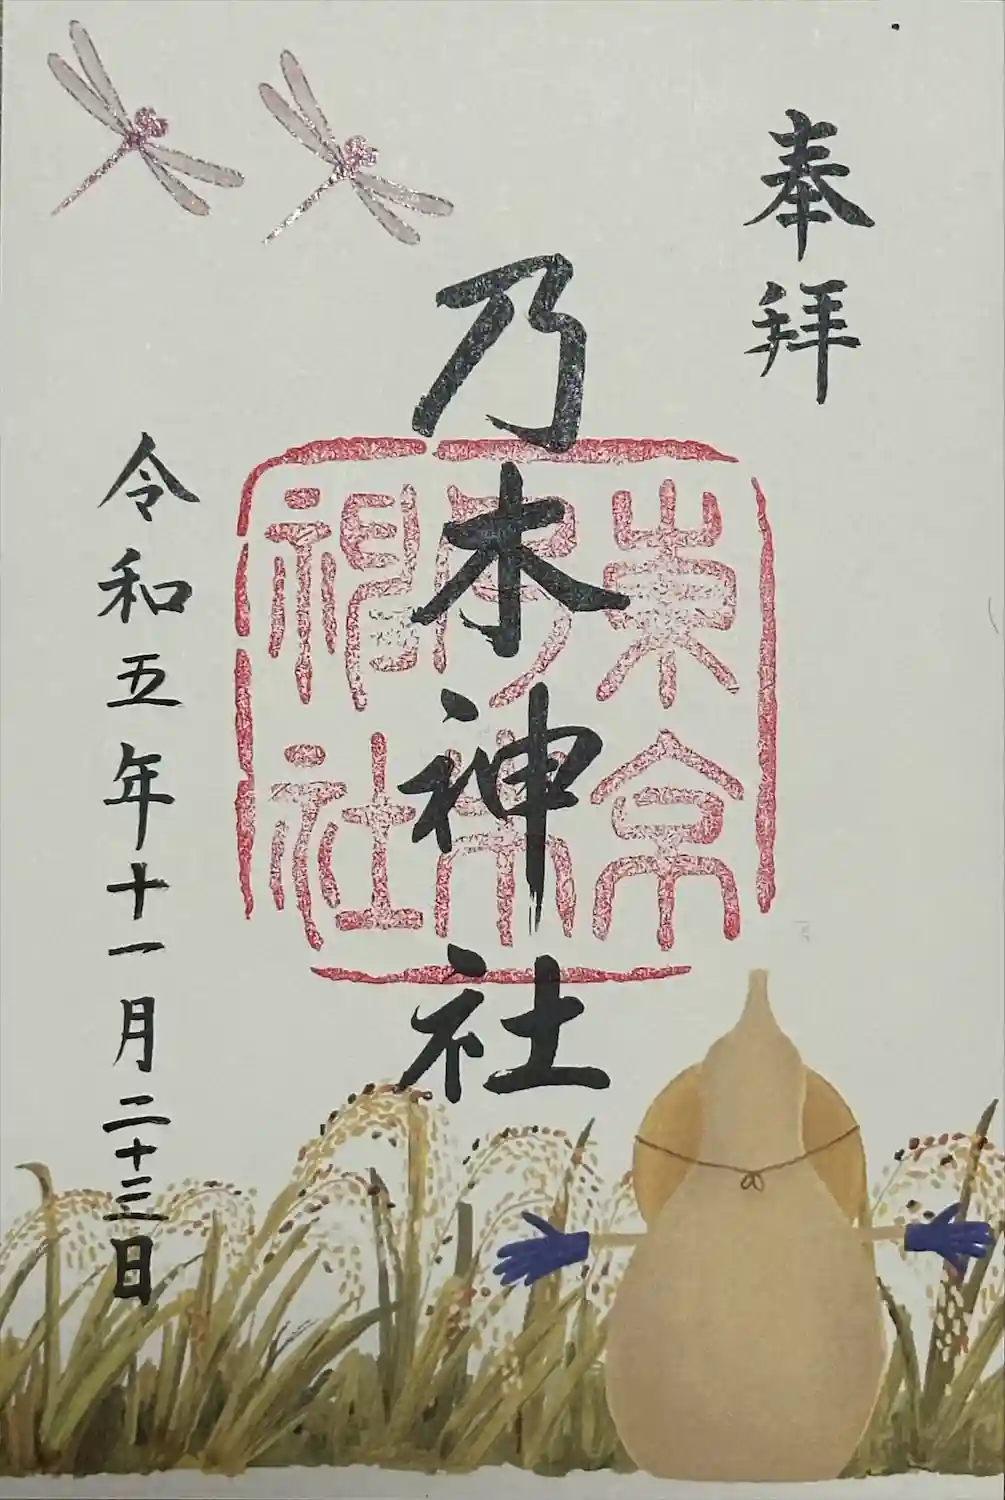 奉拜
乃木神社
東京
乃木
神社
令和五年十一月二十三日